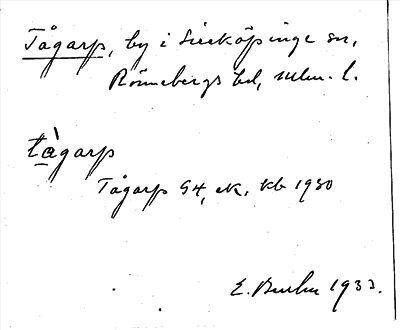 Tågarp, by i Sireköpinge sn,
Rönnebergs hd, Mlm. l.
tàgarp
Tågarp G4, ek. kb 1930
E. 1933.